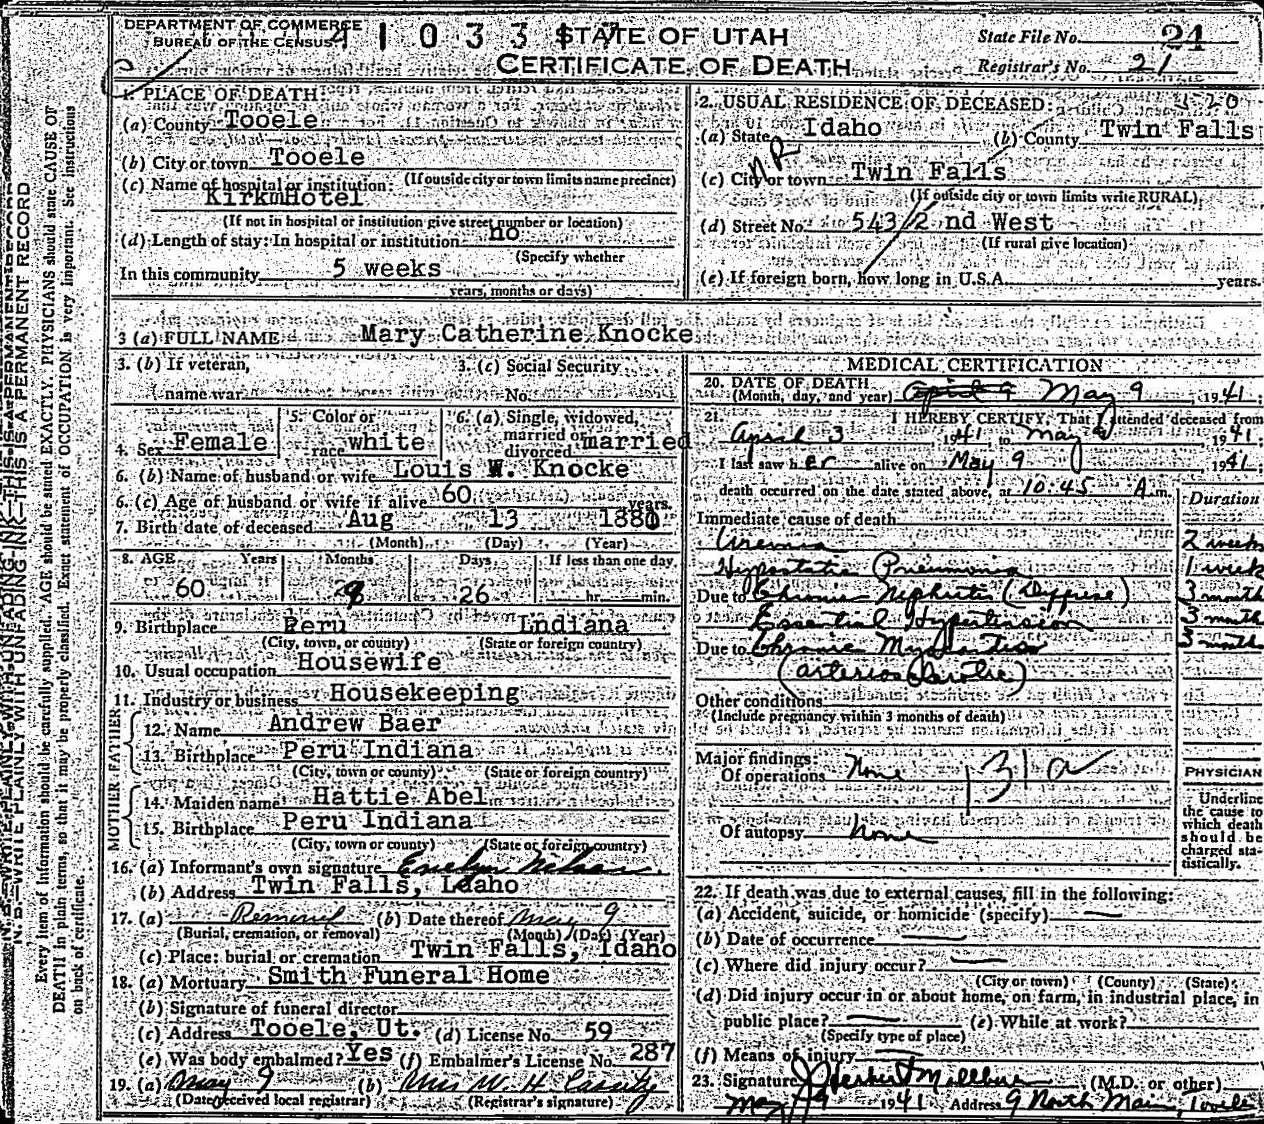 DEPARTMENT OF COMMERCE
BUREAU OF THE CENSUS
STATE OF UTAH
CERTIFICATE OF DEATH
State File No. 24
Registrar's No. 21
1. PLACE OF DEATH:
(a) County Tooele
(b) City or town Tooele
(If outside city or town limits name precinct)
(c) Name of hospital or institution:
KirkmHotel
(If not in hospital or institution give street number or location)
(d) Length of stay: In hospital or institution no
(Specify whether
In this community 5 weeks
years, months or days)
2. USUAL RESIDENCE OF DECEASED:
(a) State Idaho (b) County Twin Falls
NR
(c) City or town Twin Falls
(If outside city or town limits write RURAL)
(d) Street No. 543/2 nd West
(If rural give location)
(e) If foreign born, how long in U.S.A. years.
3 (a) FULL NAME Mary Catherine Knocke
3. (b) If veteran,
name war
3. (c) Social Security
No.
4. Sex Female
5. Color or
race white
6. (a) Single, widowed,
married or
divorced married
6. (b) Name of husband or wife Louis W. Knocke
6. (c) Age of husband or wife if alive 60 years.
7. Birth date of deceased Aug 13
(Month) (Day) (Year)
8. AGE Years Months Days If less than one day
60 26 hr. min.
9. Birthplace Peru Indiana
(City, town, or county) (State or foreign country)
10. Usual occupation Housewife
11. Industry or business Housekeeping
FATHER
12. Name Andrew Baer
13. Birthplace Peru Indiana
(City, town or county) (State or foreign country)
MOTHER
14. Maiden name Hattie Abel
15. Birthplace Peru Indiana
(City, town or county) (State or foreign country)
16. (a) Informant's own signature Evelyn
(b) Address Twin Falls, Idaho
17. (a) Removal (b) Date thereof May 9
(Burial, cremation, or removal) (Month) (Day) (Year)
(c) Place: burial or cremation Twin Falls, Idaho
18. (a) Mortuary Smith Funeral Home
(b) Signature of funeral director
(c) Address Tooele, Ut. (d) License No. 59
(e) Was body embalmed? Yes (f) Embalmer's License No. 287
19. (a) May 9 (b) Mrs W. H. Cassity
(Date received local registrar) (Registrar's signature)
MEDICAL CERTIFICATION
20. DATE OF DEATH
(Month, day, and year) April 9 May 9, 1941;
21. I HEREBY CERTIFY, That I attended deceased from
April 3 1941, to May 9 1941;
I last saw her alive on May 9 1941;
death occurred on the date stated above, at 10:45 A. m.
Duration
Immediate cause of death
Uremia 2 weeks
Hypostatic Pneumonia 1 week
Due to Chronic Nephritis (Diffuse) 3 month
Essential Hypertension 3 month
Due to Chronic Myocarditis 3 month
(arteriosclerotic)
Other conditions
(Include pregnancy within 3 months of death)
Major findings:
Of operations None 131a
Of autopsy None
PHYSICIAN
Underline
the cause to
which death
should be
charged sta-
tistically.
22. If death was due to external causes, fill in the following:
(a) Accident, suicide, or homicide (specify)
(b) Date of occurrence
(c) Where did injury occur?
(City or town) (County) (State)
(d) Did injury occur in or about home, on farm, in industrial place, in
public place? (e) While at work?
(Specify type of place)
(f) Means of injury
23. Signature J Herbert Millburn (M.D. or other)
May 9 1941 Address 9 North Main, Tooele
N. B.—WRITE PLAINLY WITH UNFADING INK—THIS IS A PERMANENT RECORD
Every item of information should be carefully supplied. AGE should be stated EXACTLY. PHYSICIANS should state CAUSE OF
DEATH in plain terms, so that it may be properly classified. Exact statement of OCCUPATION is very important. See instructions
on back of certificate.